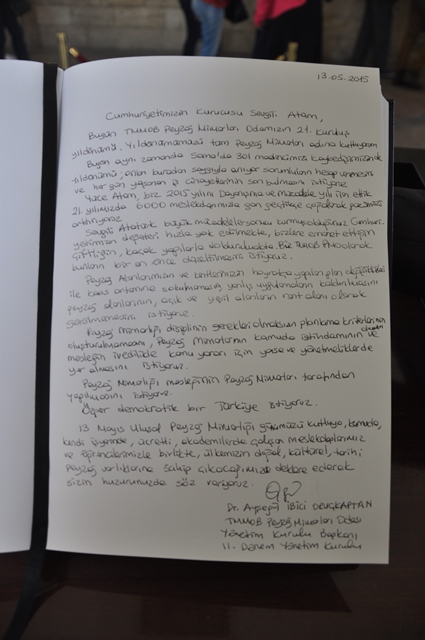 13.05.2015
Cumhuriyetimizin Kurucusu Sevgili Atam,
Bugün TMMOB Peyzaj Mimarları Odamızın 21. Kuruluş
yıldönümü. Yıldönümümüzü tüm Peyzaj Mimarları adına kutluyorum
Bugün aynı zamanda Soma'da 301 madencimizi kaybedişimizin de
yıldönümü, onları buradan saygıyla anıyor sorumluların hesap vermesini
ve her gün yaşanan iş cinayetlerinin son bulmasını istiyoruz
Yüce Atam, biz 2015 yılını Dayanışma ve mücadele yılı ilan ettik
21. yılımızda 6000 meslektaşımızla gün geçtikçe çoğalarak gücümüzü
arttırıyoruz
Sevgili Atatürk büyük mücadeleler sonucu kurmuş olduğunuz Cumhuri-
yetimizin değerleri hızla yok edilmekte, bizlere emanet ettiğin
Çiftliğin, kaçak yapılarla doldurulmakta. Biz TMMOB PMO olarak
bunların bir an önce düzeltilmesini istiyoruz.
Peyzaj Alanlarımızın ve kentlerimizin hoyratça yapılan plan değişiklikleri
ile kaos ortamına sokulmasını, yanlış uygulamaların kaldırılmasını
peyzaj alanlarının, açık ve yeşil alanların rant alanı olarak
görülmemesini istiyoruz.
Peyzaj Mimarlığı disiplinin gerekleri olmaksızın planlama kriterlerinin
oluşturulmamasını, Peyzaj Mimarlarının kamuda istihdamının ve
mesleğin ivedilikle kamu yararı için yasa ve yönetmeliklerde
yer almasını istiyoruz.
Peyzaj Mimarlığı mesleğinin Peyzaj Mimarları tarafından
yapılmasını istiyoruz.
Özgür demokratik bir Türkiye istiyoruz.
13 Mayıs Ulusal Peyzaj Mimarlığı gününüzü kutluyor, kamuda,
kendi işyerinde, ücretli, akademilerde çalışan meslektaşlarımız
ve öğrencilerimizle birlikte, ülkemizin doğal, kültürel, tarihi
Peyzaj varlıklarına sahip çıkacağımızı deklare ederek
sizin huzurunuzda söz veriyoruz.
Dr. Ayşegül İBİCİ ORUÇKAPTAN
TMMOB Peyzaj Mimarları Odası
Yönetim Kurulu Başkanı
11. Dönem Yönetim Kurulu